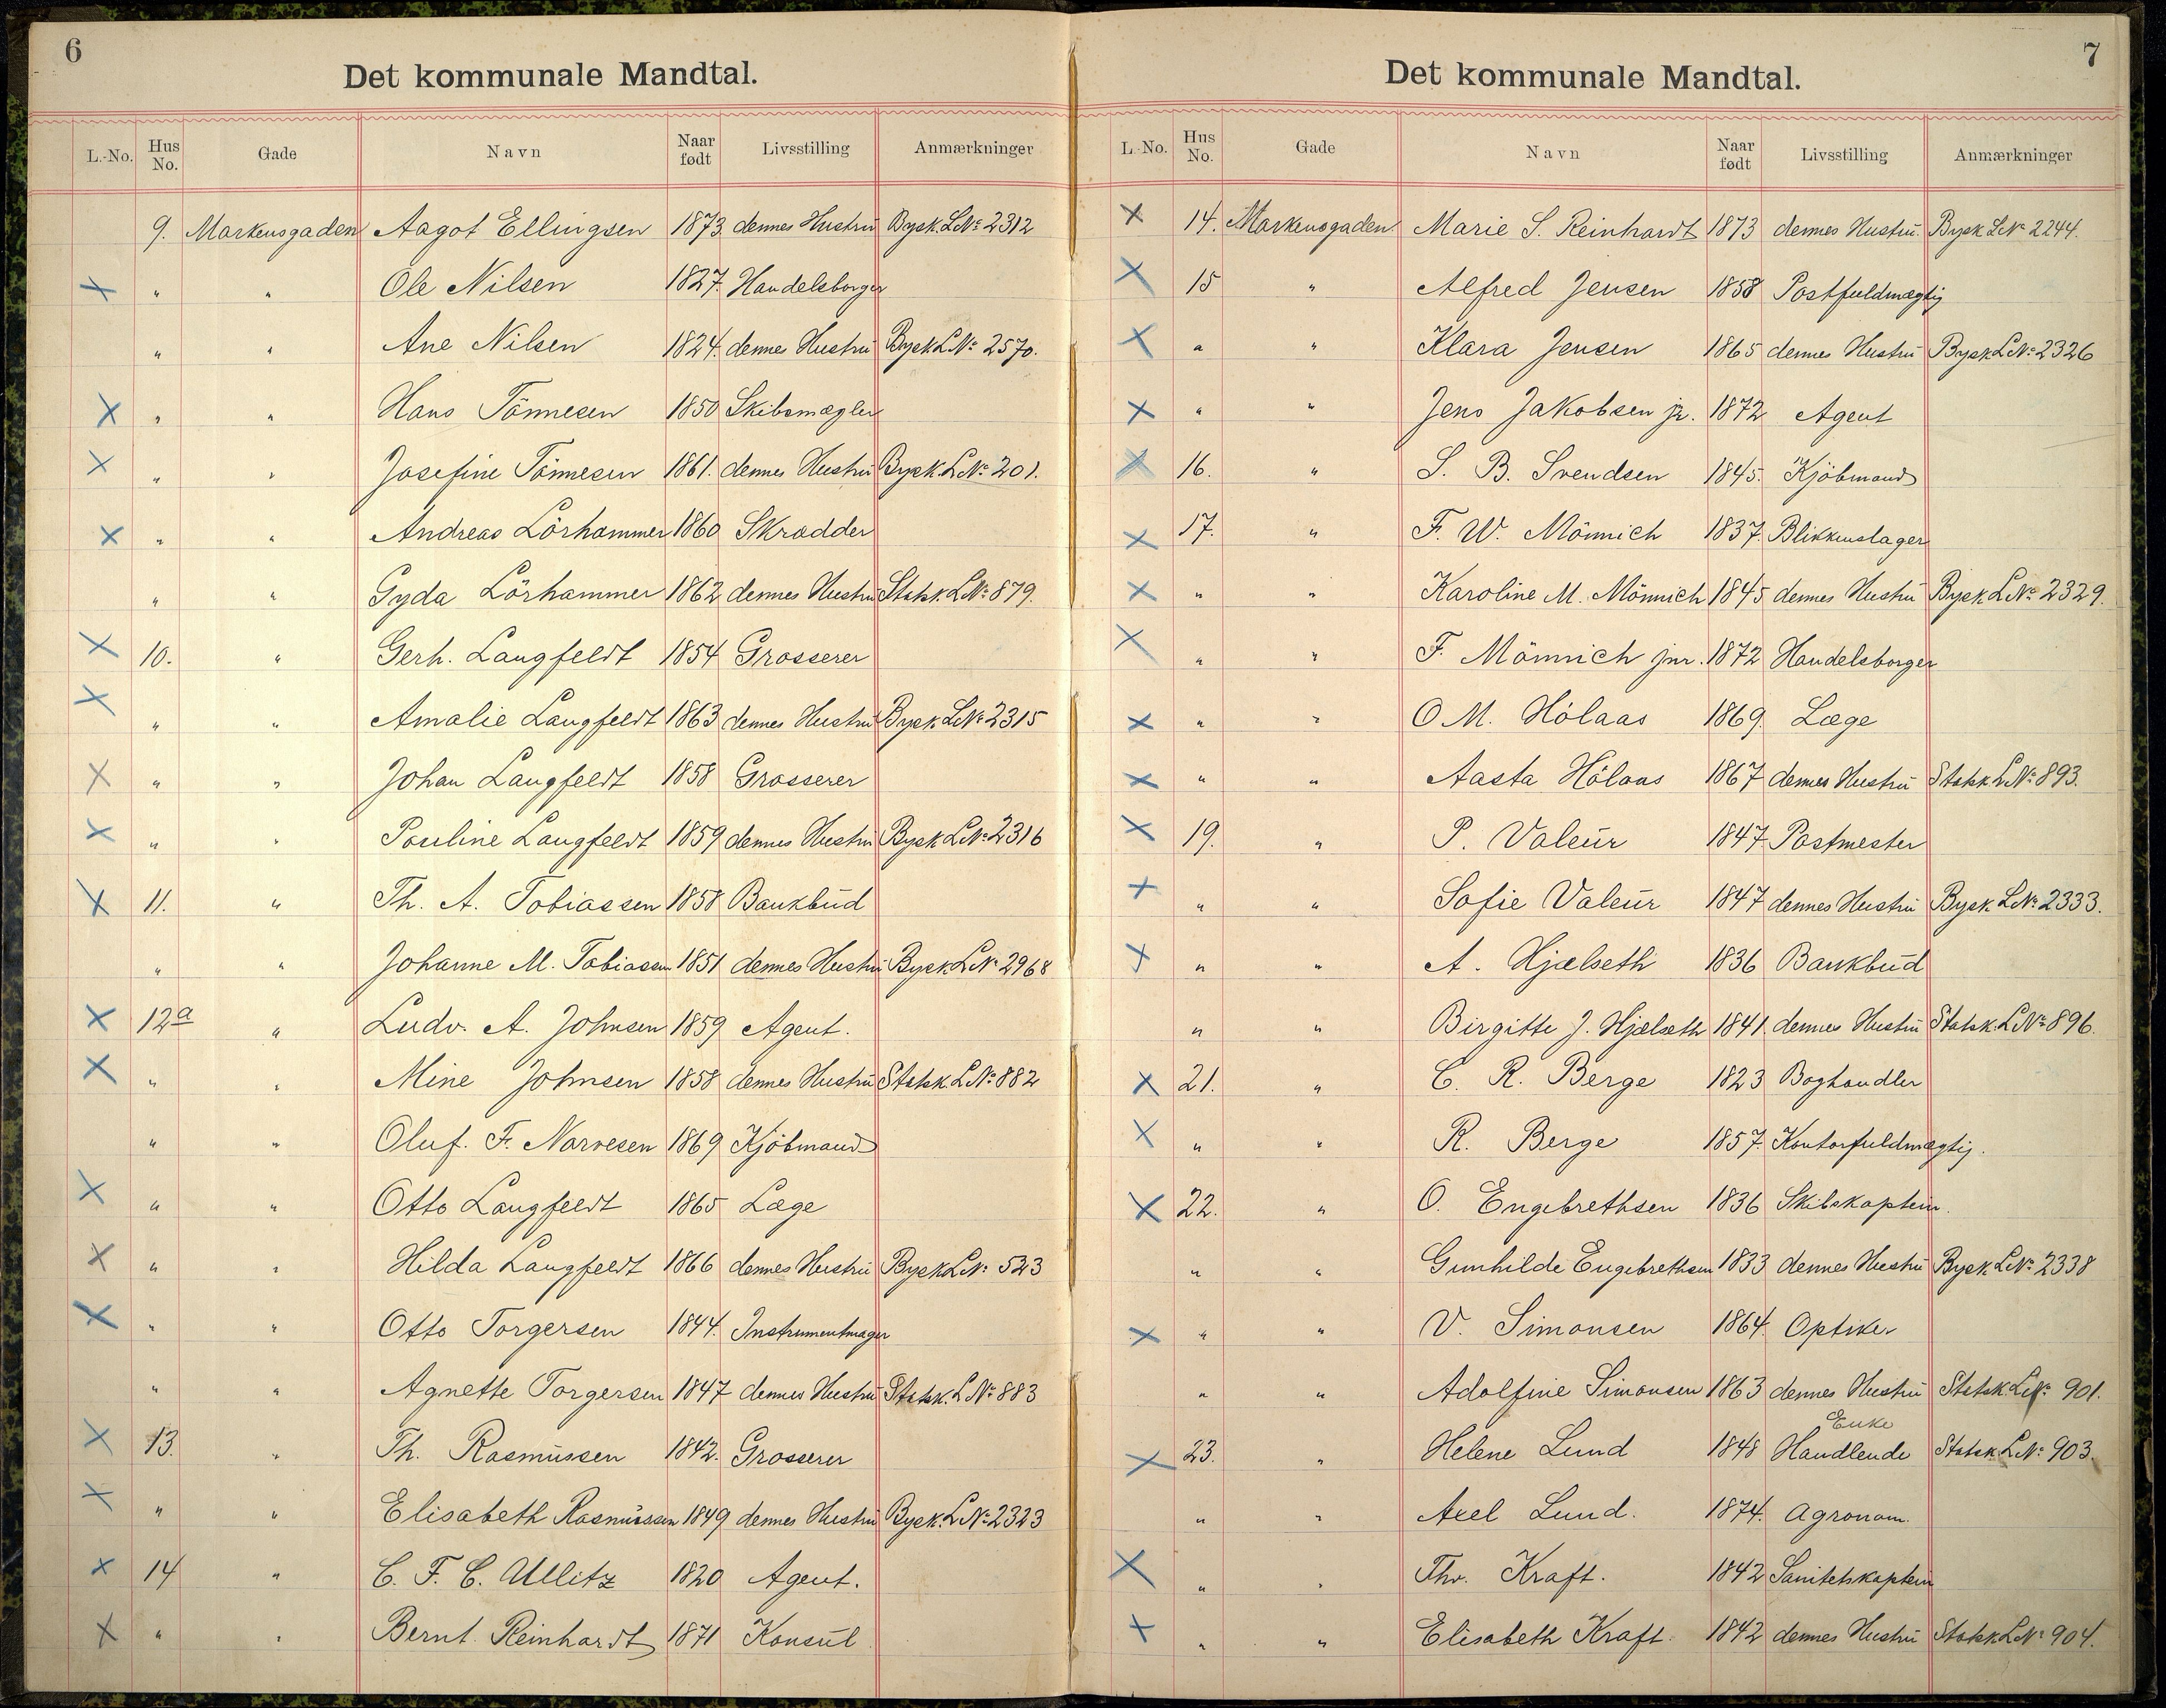 6
Det kommunale Mandtal.
L.-No. Hus No. Gade Navn Naar født Livsstilling Anmærkninger
9. Markensgaden Aagot Ellingsen 1873 dennes Hustru Bysk. LNo 2312
" " Ole Nilsen 1827. Handelsborger
" " Ane Nilsen 1824. dennes Hustru Bysk LNo 2570.
" " Hans Tönnesen 1850 Skibsmægler
" " Josefine Tönnesen 1861. dennes Hustru Bysk. LNo 201.
" " Andreas Lörhammer 1860 Skradder
" " Gyda Lörhammer 1862 dennes Hustru Statsk. LNo 879.
10. " Gerh. Langfeldt 1854 Grosserer
" " Amalie Langfeldt 1863 dennes Hustru Bysk. LNo 2315
" " Johan Langfeldt 1858 Grosserer
" " Pauline Langfeldt 1859 dennes Hustru Bysk LNo 2316
11. " Th. A. Tobiassen 1858 Bankbud
" " Johanne M. Tobiassen 1851 dennes Hustru Bysk. LNo 2968
12a " Ludv. A. Johnsen 1859 Agent.
" " Mine Johnsen 1858 dennes Hustru Statsk. LNo 882
" " Oluf. F. Narvesen 1869 Kjöbmand
" " Otto Langfeldt 1865 Læge
" " Hilda Langfeldt 1866 dennes Hustru Bysk LNo 523
" " Otto Torgersen 1844. Instrumentmager
" " Agnette Torgersen 1847 dennes Hustru Statsk. LNo 883
13. " Th. Rasmussen 1842. Grosserer
" " Elisabeth Rasmussen 1849 dennes Hustru Bysk. LNo 2323
14 " C. F. C. Ullitz 1820 Agent.
" " Bernt Reinhardt 1871 Konsul
7
Det kommunale Mandtal.
L.-No. Hus No. Gade Navn Naar født Livsstilling Anmærkninger
14. Markensgaden Marie S. Reinhardt 1873 dennes Hustru. Bysk LNo 2244.
15 " Alfred Jensen 1858 Postfuldmægtig
" " Klara Jensen 1865 dennes Hustru Bysk LNo 2326
" " Jens Jakobsen jr. 1872 Agent
16. " S. B. Svendsen 1845. Kjöbmand
17. " F. W. Mönnich 1837. Blikkenslager
" " Karoline M. Mönnich 1845 dennes Hustru Bysk LNo 2329.
" " F. Mönnich jnr. 1872 Handelsborger
" " O M. Hölaas 1869. Læge
" " Aasta Hölaas 1867 dennes Hustru Statsk. LNo 893.
19. " P. Valeur 1847. Postmester
" " Sofie Valeur 1847 dennes Hustru Bysk LNo 2333.
" " A. Hjælseth 1836 Bankbud
" " Birgitte J. Hjælseth 1841. dennes Hustru Statsk. LNo 896.
21. " C. R. Berge 1823 Boghandler
" " R. Berge 1857. Kontorfuldmægtig.
22. " O. Engebrethsen 1836 Skibskaptein.
" " Gunhilde Engebrethsen 1833 dennes Hustru Bysk LNo 2338
" " V. Simonsen 1864. Optiker
" " Adolfine Simonsen 1863 dennes Hustru Statsk. LNo 901.
Enke
23. " Helene Lund 1848 Handlende Statsk. LNo 903.
" " Axel Lund. 1874. Agronom.
" " Thv. Kraft. 1842 Sanitetskaptein
" " Elisabeth Kraft. 1842 dennes Hustru Statsk LNo 904.